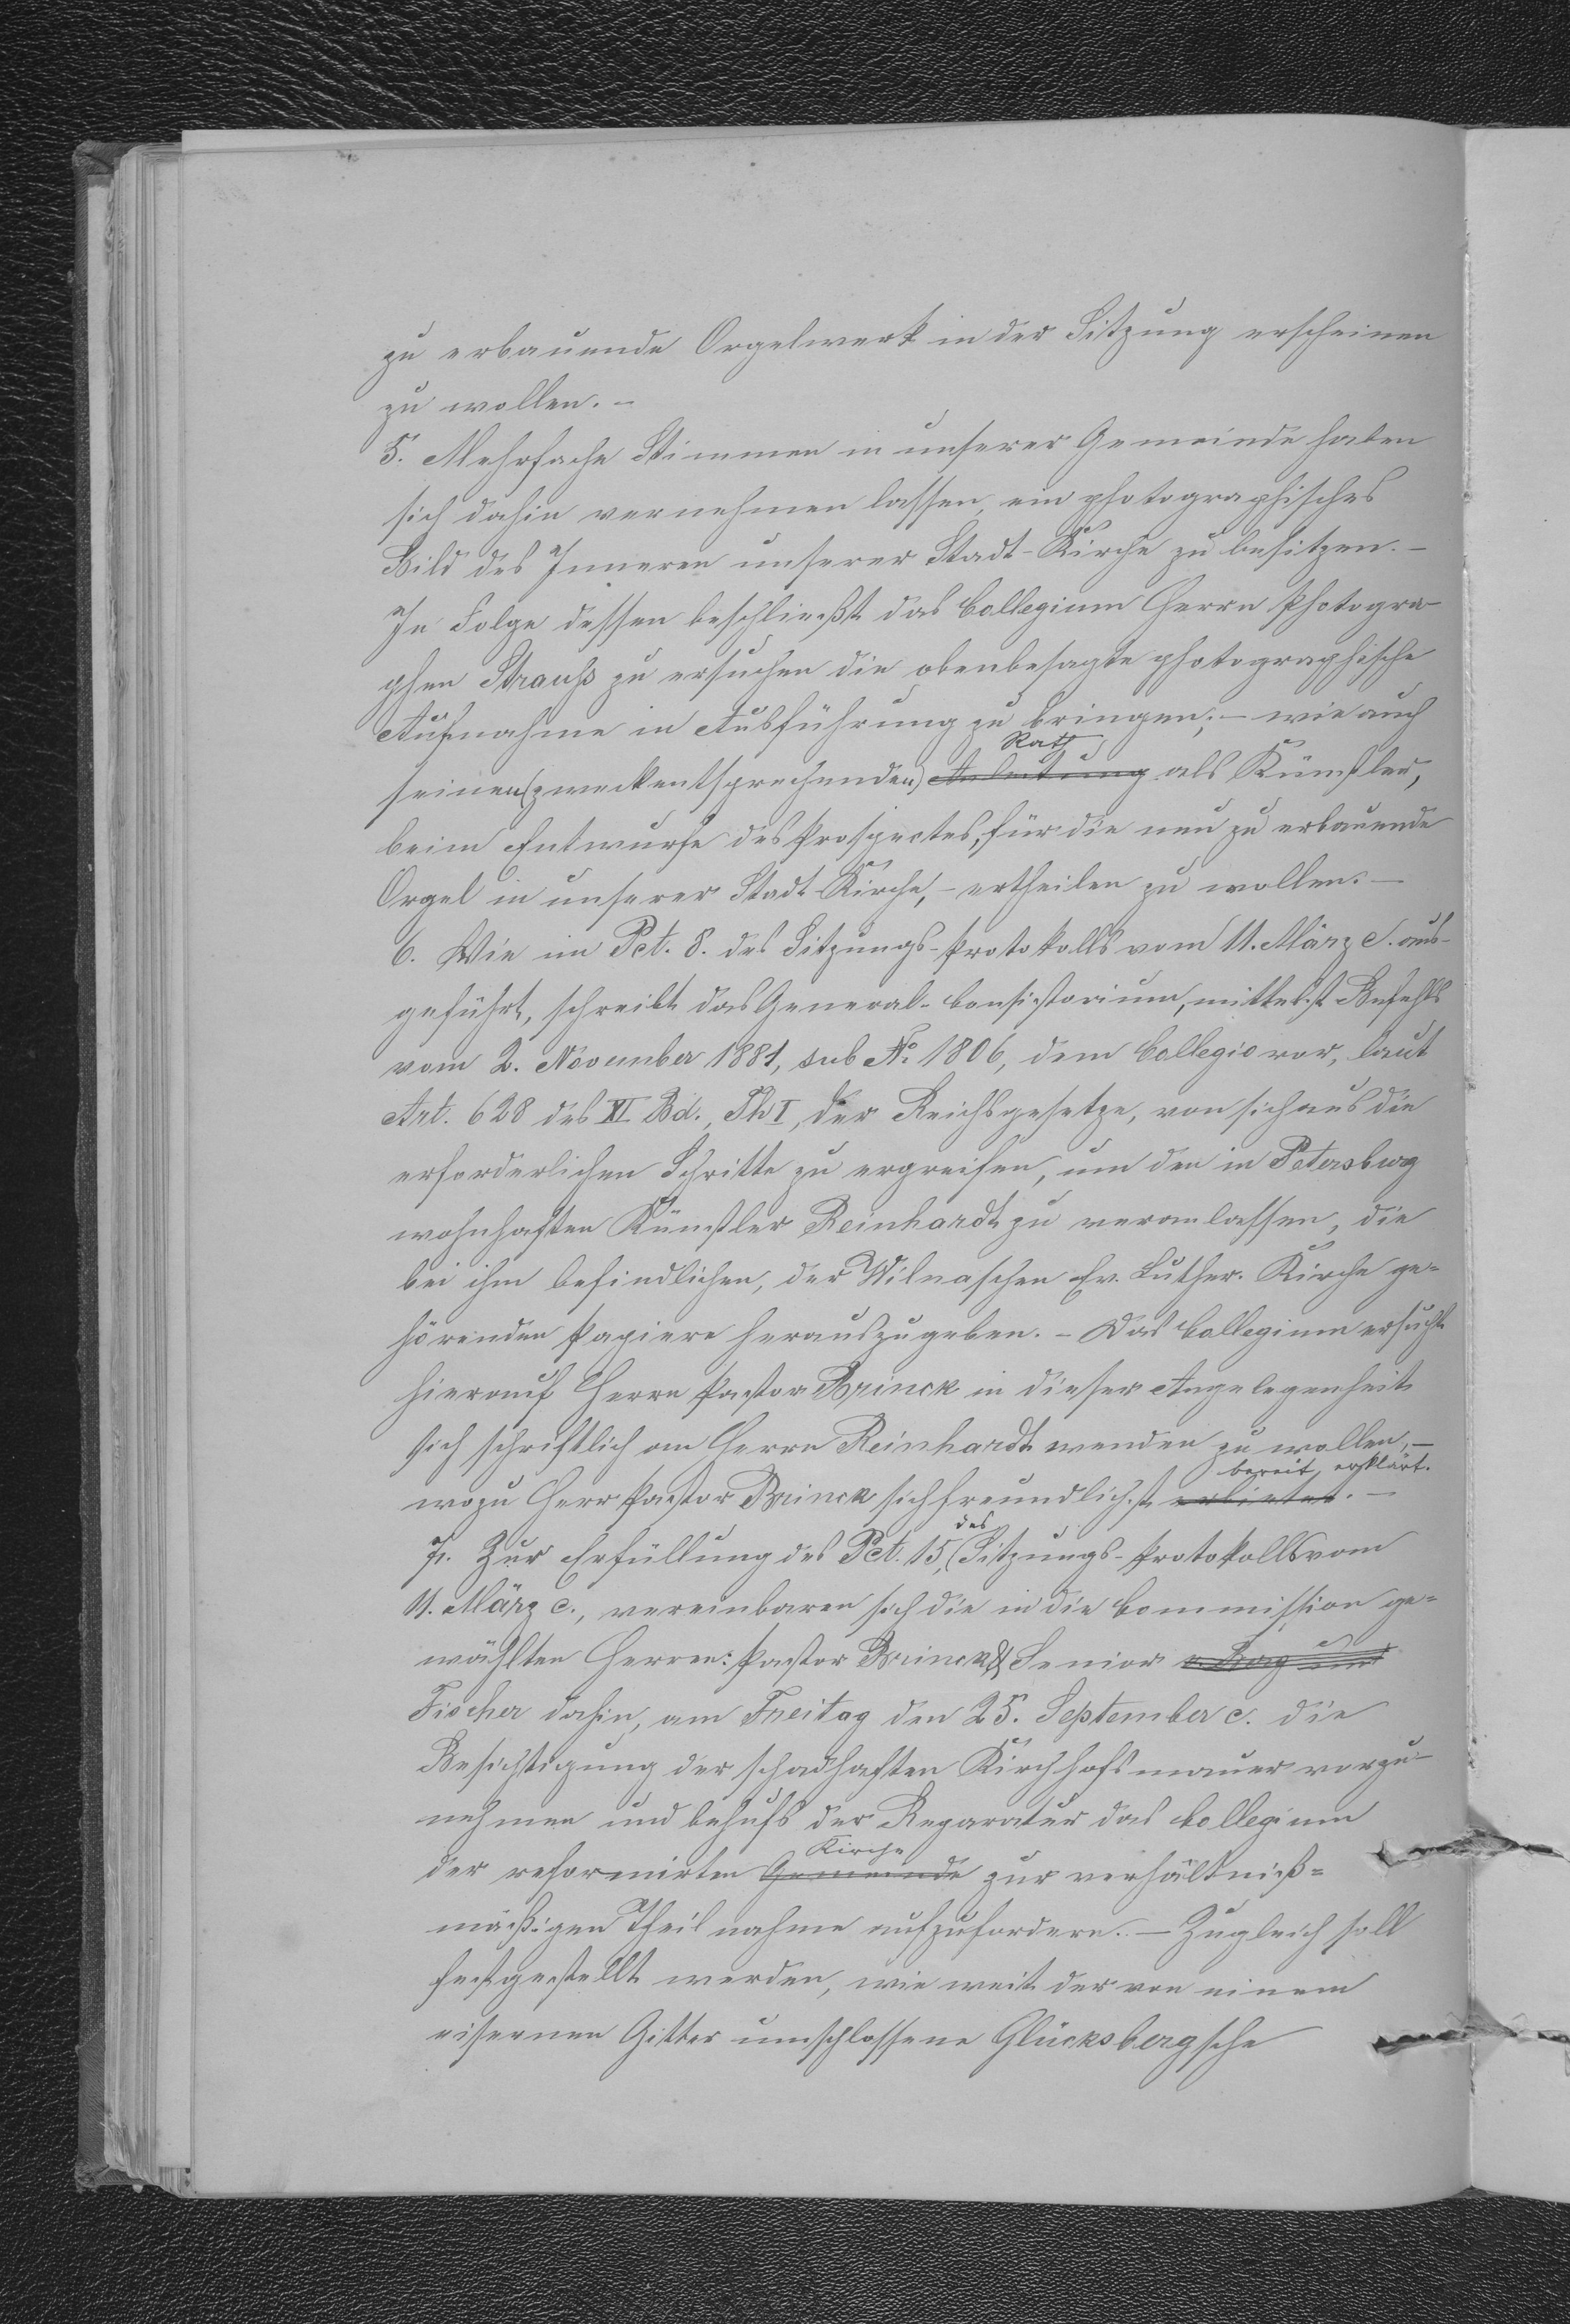 zu erbauende Orgelwerk in der Sitzung erscheinen
zu wollen. –
5. Mehrfache Stimmen in unserer Gemeinde haben
sich dahin vernehmen lassen, ein photographisches
Bild des Inneren unserer Stadt-Kirche zu besitzen. –
In Folge dessen beschließt das Collegium Herrn Photogra-
phen Strauss zu ersuchen die obenbesagte photographische
Aufnahme in Ausführung zu bringen; – wie auch
Rath
seinen (zweckentsprechenden) Anleitung als Künstler,
beim Entwurfe des Prospectes, für die neu zu erbauende
Orgel in unserer Stadt-Kirche, – ertheilen zu wollen. –
6. Wie im Pct. 8. des Sitzungs-Protokolls vom 11. März c. aus-
geführt, schreibt das General-Consistorium, mittelst Befehls
vom 2. November 1881, sub No 1806, dem Collegio vor, laut
Art. 628 des XI Bd., Th I, der Reichsgesetze, von sich aus die
erforderlichen Schritte zu ergreifen, um den in Petersburg
wohnhaften Künstler Reinhardt zu veranlassen, die
bei ihm befindlichen, der Wilnaschen Ev. Luther. Kirche ge-
hörenden Papiere herauszugeben. – Das Collegium ersucht
hierauf Herrn Pastor Brinck in dieser Angelegenheit
sich schriftlich an Herrn Reinhardt wenden zu wollen, –
bereit, erklärt.
wozu Herr Pastor Brinck sich freundlichst erbietet. –
des
7. Zur Erfüllung des Pct. 15, (Sitzungs-Protokolls vom
11. März c., vereinbaren sich die in die Commission ge-
wählten Herren: Pastor Brinck & Senior v. Borg und
Fischer dahin, am Freitag den 25. September c. die
Besichtigung der schadhaften Kirchhofsmauer vorzu-
nehmen und behufs der Reparatur das Collegium
Kirche
der reformirten Gemeinde zur verhältniß-
mäßigen Theilnahme aufzufordern. – Zugleich soll
festgestellt werden, wie weit der von einem
eisernen Gitter umschlossene Glücksbergsche